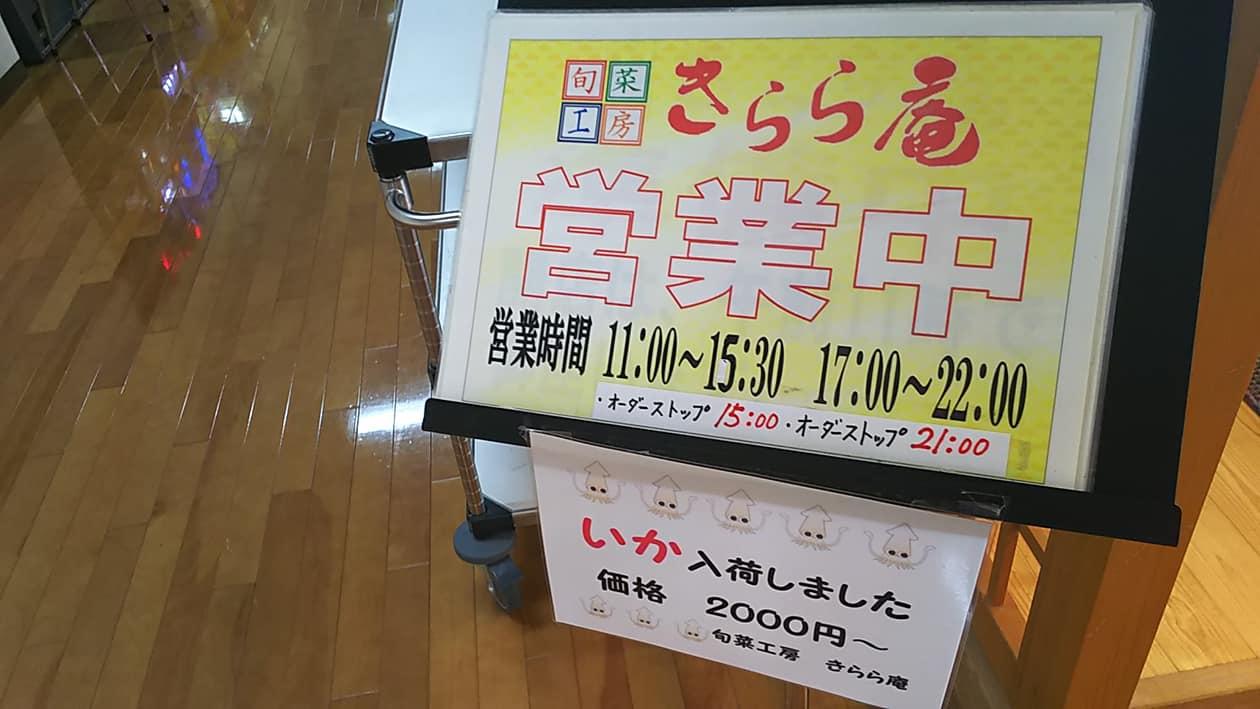 旬菜
工房
きらら庵
営業中
営業時間 11:00～15:30 17:00～22:00
・オーダーストップ 15:00 ・オーダーストップ 21:00
いか入荷しました
価格 2000円～
旬菜工房 きらら庵